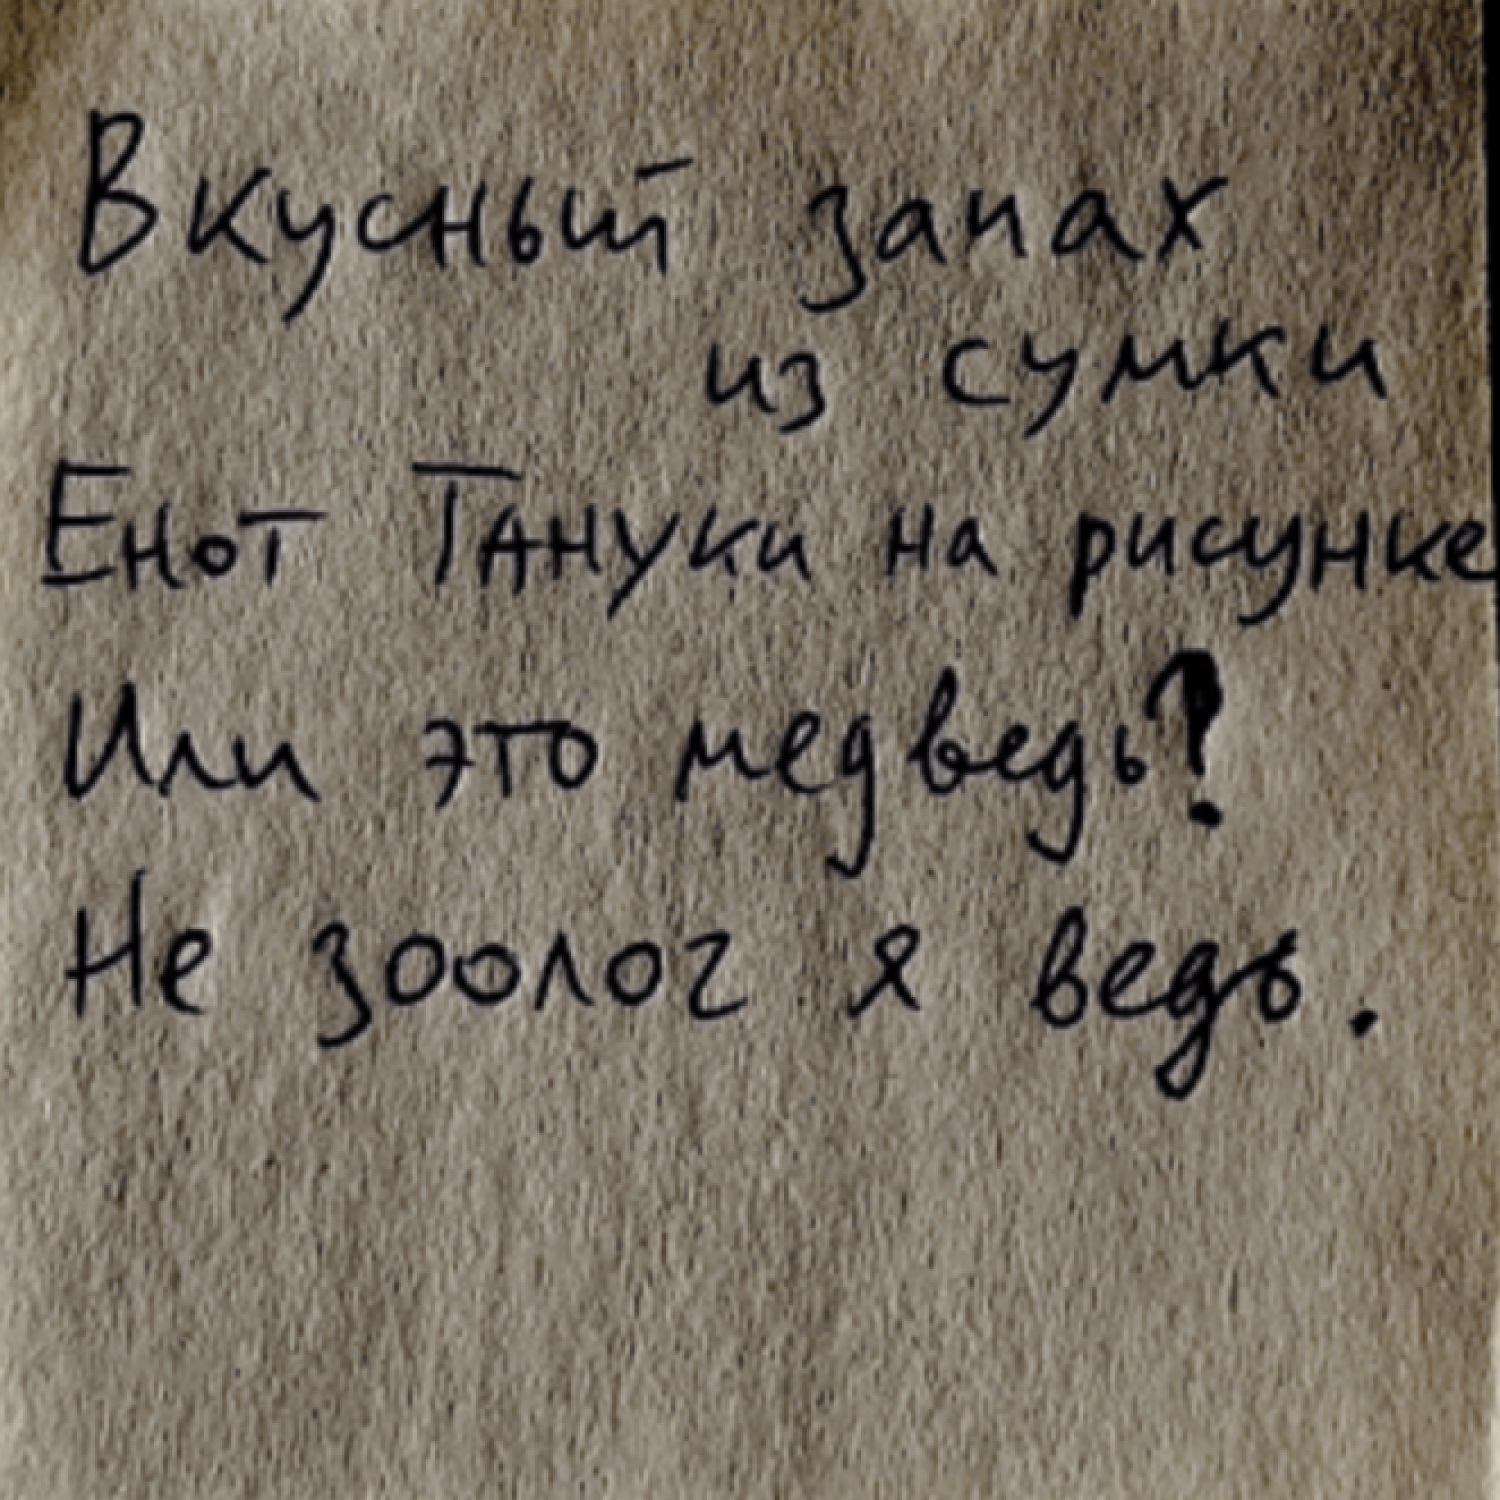 Вкусный запах
из сумки
Енот Тануки на рисунке
Или это медведь?
Не зоолог я ведь.